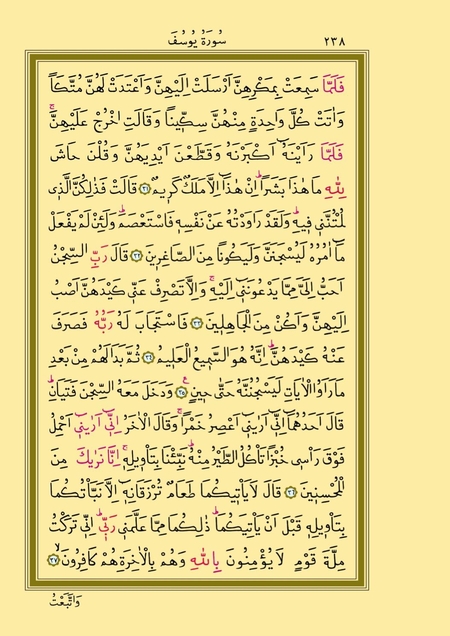 ٢٣٨ سُورَةُ يُوسُفَ
فَلَمَّا سَمِعَتْ بِمَكْرِهِنَّ اَرْسَلَتْ اِلَيْهِنَّ وَاَعْتَدَتْ لَهُنَّ مُتَّكَـًٔا
وَاٰتَتْ كُلَّ وَاحِدَةٍ مِنْهُنَّ سِكّٖينًا وَقَالَتِ اخْرُجْ عَلَيْهِنَّۚ
فَلَمَّا رَاَيْنَهُٓ اَكْبَرْنَهُ وَقَطَّعْنَ اَيْدِيَهُنَّ وَقُلْنَ حَاشَ
لِلّٰهِ مَا هٰذَا بَشَرًاۜ اِنْ هٰذَٓا اِلَّا مَلَكٌ كَرٖيمٌ ﴿٣١﴾ قَالَتْ فَذٰلِكُنَّ الَّذٖي
لُمْتُنَّنٖي فٖيهِۜ وَلَقَدْ رَاوَدْتُهُ عَنْ نَفْسِهٖ فَاسْتَعْصَمَۜ وَلَئِنْ لَمْ يَفْعَلْ
مَٓا اٰمُرُهُ لَيُسْجَنَنَّ وَلَيَكُونًا مِنَ الصَّاغِرٖينَ ﴿٣٢﴾ قَالَ رَبِّ السِّجْنُ
اَحَبُّ اِلَيَّ مِمَّا يَدْعُونَنٖٓي اِلَيْهِۚ وَاِلَّا تَصْرِفْ عَنّٖي كَيْدَهُنَّ اَصْبُ
اِلَيْهِنَّ وَاَكُنْ مِنَ الْجَاهِلٖينَ ﴿٣٣﴾ فَاسْتَجَابَ لَهُ رَبُّهُ فَصَرَفَ
عَنْهُ كَيْدَهُنَّۜ اِنَّهُ هُوَ السَّمٖيعُ الْعَلٖيمُ ﴿٣٤﴾ ثُمَّ بَدَا لَهُمْ مِنْ بَعْدِ
مَا رَاَوُا الْاٰيَاتِ لَيَسْجُنُنَّهُ حَتّٰى حٖينٍ ﴿٣٥﴾ وَدَخَلَ مَعَهُ السِّجْنَ فَتَيَانِۜ
قَالَ اَحَدُهُمَٓا اِنّٖٓي اَرٰينٖٓي اَعْصِرُ خَمْرًاۚ وَقَالَ الْاٰخَرُ اِنّٖٓي اَرٰينٖٓي اَحْمِلُ
فَوْقَ رَاْسٖي خُبْزًا تَاْكُلُ الطَّيْرُ مِنْهُۜ نَبِّئْنَا بِتَاْوٖيلِهٖۚ اِنَّا نَرٰيكَ مِنَ
الْمُحْسِنٖينَ ﴿٣٦﴾ قَالَ لَا يَاْتٖيكُمَا طَعَامٌ تُرْزَقَانِهٖٓ اِلَّا نَبَّاْتُكُمَا
بِتَاْوٖيلِهٖ قَبْلَ اَنْ يَاْتِيَكُمَاۜ ذٰلِكُمَا مِمَّا عَلَّمَنٖي رَبّٖيۜ اِنّٖي تَرَكْتُ
مِلَّةَ قَوْمٍ لَا يُؤْمِنُونَ بِاللّٰهِ وَهُمْ بِالْاٰخِرَةِ هُمْ كَافِرُونَۙ ﴿٣٧﴾
وَاتَّبَعْتُ